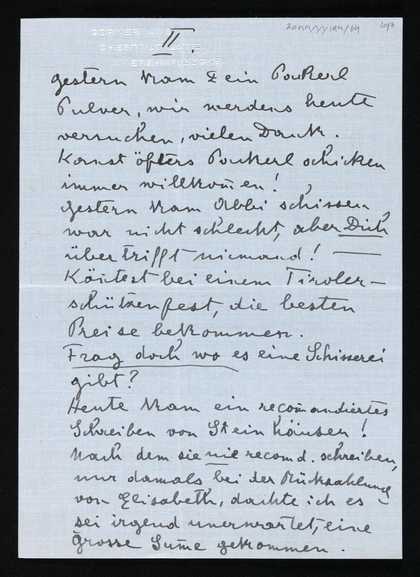 II.
gestern kam ein Packerl
Pulver, wir werdens heute
versuchen, vielen Dank.
Kanst öfters Packerl schicken
immer willkom̄en!
gestern kam Abbi schissen
war nicht schlecht, aber Dich
übertrifft niemand! —
Kön̄test bei einem Tiroler-
schützenfest, die besten
Preise bekommen.
Frag doch wo es eine Schisserei
gibt?
Heute kam ein recom̄andiertes
Schreiben von Steinhäuser!
Nach dem sie nie recomd. schreiben,
nur damals bei der Rückzahlung
von Elisabeth, dachte ich es
sei irgend unerwartet, eine
grosse Sum̄e gekommen.